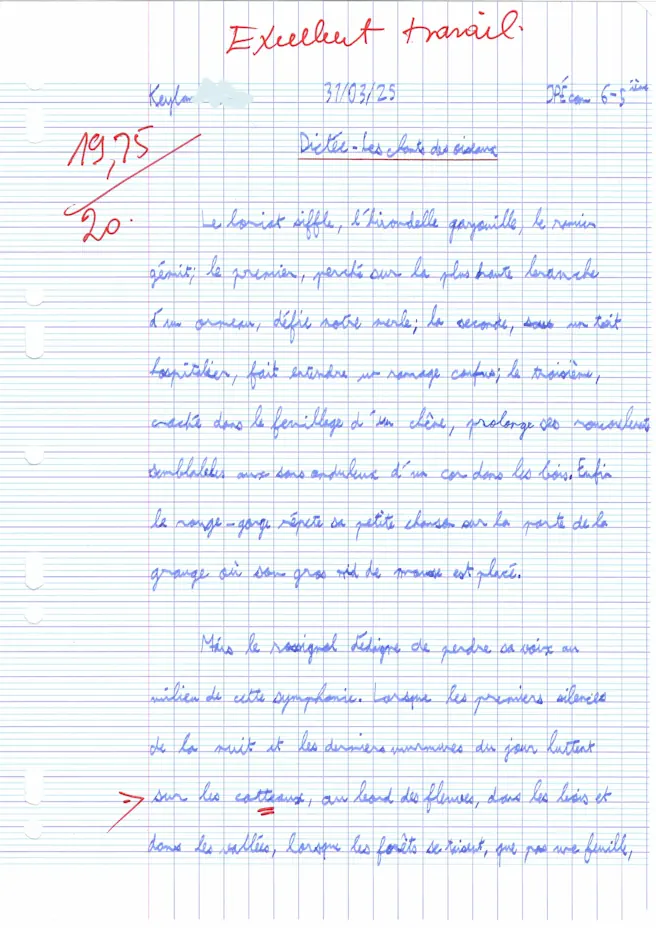 Excellent travail.
Keylan 31/03/25 6-5ième
19,75
20.
Dictée - Les chants des oiseaux
Le loriot siffle, l'hirondelle gazouille, le ramier
gémit; le premier, perché sur la plus haute branche
d'un ormeau, défie notre merle; la seconde, sous un toit
hospitalier, fait entendre un ramage confus; le troisième,
caché dans le feuillage d'un chêne, prolonge ses roucoulements
semblables aux sons onduleux d'un cor dans les bois. Enfin
le rouge-gorge répète sa petite chanson sur la porte de la
grange où son gros nid de mousse est placé.
Mais le rossignol dédigne de perdre sa voix au
milieu de cette symphonie. Lorsque les premiers silences
de la nuit et les derniers murmures du jour luttent
sur les cotteaux, au bord des fleuves, dans les bois et
dans les vallées, lorsque les forêts se taisent, que pas une feuille,